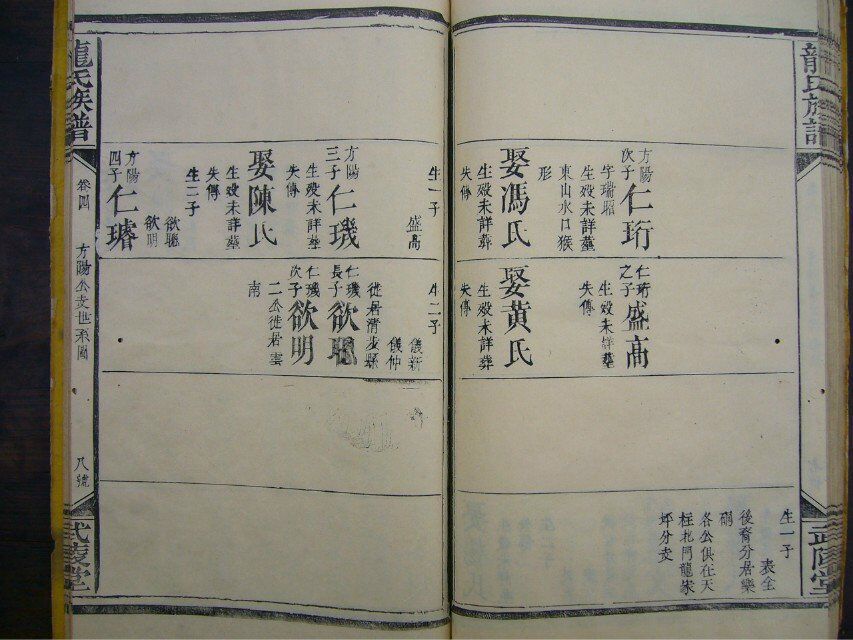 龍氏族譜
武陵堂
方陽
次子
仁珩
字瑞昭
生殁未詳葬
東山水口猴
形
娶馮氏
生殁未詳葬
失傳
仁珩
之子
盛高
生殁未詳葬
失傳
娶黃氏
生殁未詳葬
失傳
生一子
表全
後裔分居樂
嗣
各公俱在天
柱北門龍家
坪分支
生一子
盛高
方陽
三子
仁璣
生殁未詳葬
失傳
娶陳氏
生殁未詳葬
失傳
生二子
欲聰
欲明
方陽
四子
仁璿
生二子
儀新
儀仲
仁璣
長子
欲聰
徙居清步縣
仁璣
次子
欲明
二公徙居雲
南
龍氏族譜
卷四
方陽公支世系圖
八號
武陵堂